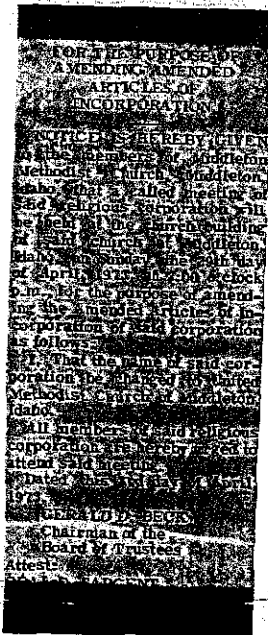 FOR THE PURPOSE OF
AMENDING AMENDED
ARTICLES OF
INCORPORATION
NOTICE IS HEREBY GIVEN
members of Middleton
Methodist Church, Middleton,
Idaho, that a called meeting of
said religious corporation will
be held at the church building
of said church at Middleton,
Idaho, on Sunday, the 29th day
of April, 1973, at o'clock
p.m. for the purpose of amend-
ing the Amended Articles of In-
corporation of said corporation
as follows:
1. That the name of said cor-
poration be changed to United
Methodist Church of Middleton,
Idaho.
All members of said religious
corporation are hereby urged to
attend said meeting.
Dated this day of April,
1973.
GERALD
Chairman of the
Board of Trustees
Attest: